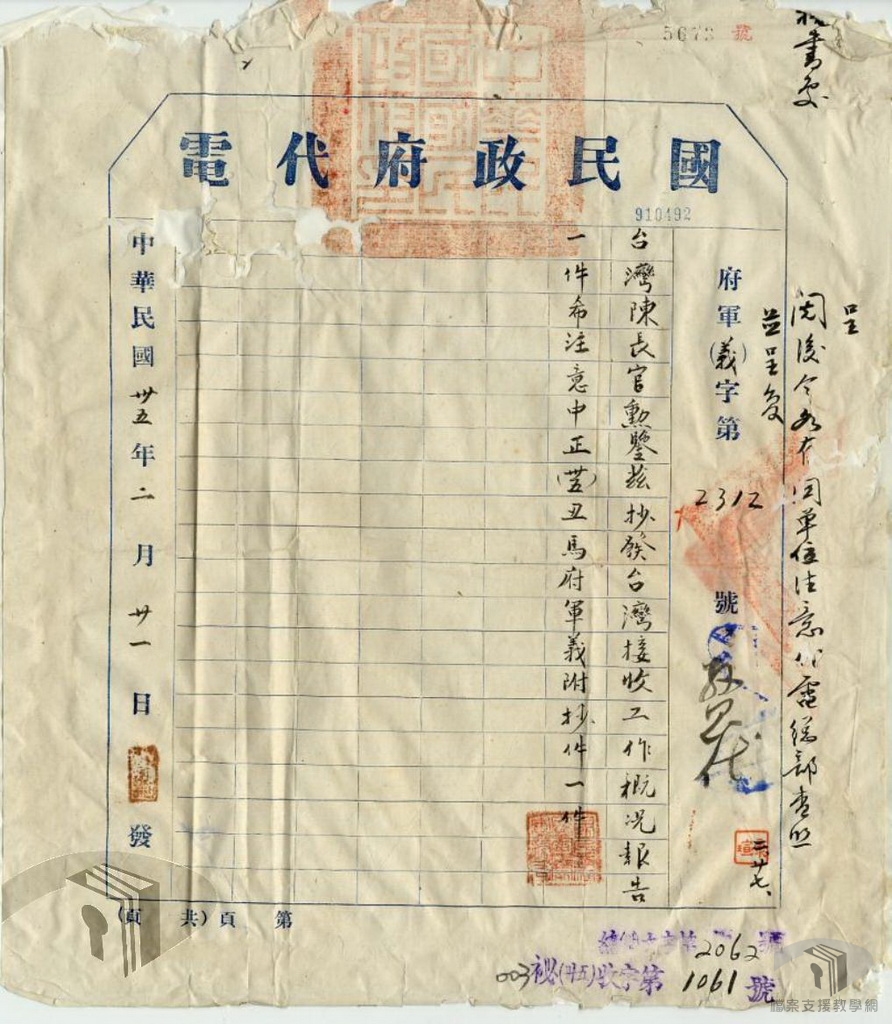 5673 號
秘書處
國民政府代電
910492
呈
閱後令知有關單位注意
並呈復
府軍(義)字第2312號
台灣陳長官勳鑒茲抄發台灣接收工作概況報告
一件希注意中正(卅五)丑馬府軍義附抄件一件
中華民國卅五年二月廿一日發
二 廿七、
第 頁(共 頁)
2062號
003秘(卅五)收字第1061號
檔案支援教學網